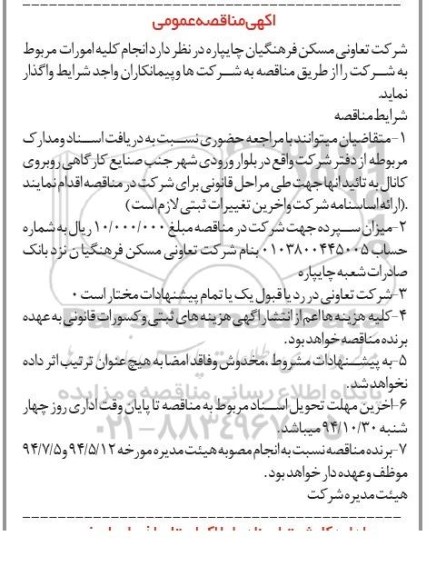 اگهی مناقصه عمومی
شرکت تعاونی مسکن فرهنگیان چایپاره در نظر دارد انجام کلیه امورات مربوط
به شرکت را از طریق مناقصه به شرکت ها و پیمانکاران واجد شرایط واگذار
نماید.
شرایط مناقصه
۱-متقاضیان میتوانند با مراجعه حضوری نسبت به دریافت اسناد و مدارک
مربوطه از دفتر شرکت واقع در بلوار ورودی شهر جنب صنایع کارگاهی روبروی
کانال به تائید انها جهت طی مراحل قانونی برای شرکت در مناقصه اقدام نمایند
.(ارائه اساسنامه شرکت واخرین تغییرات ثبتی لازم است)
۲-میزان سپرده جهت شرکت در مناقصه مبلغ ۱۰/۰۰۰/۰۰۰ ریال به شماره
حساب ۰۱۰۳۸۰۰۴۴۵۰۰۵ بنام شرکت تعاونی مسکن فرهنگیان نزد بانک
صادرات شعبه چایپاره
۳-شرکت تعاونی در رد یا قبول یک یا تمام پیشنهادات مختار است ۰
۴-کلیه هزینه ها اعم از انتشار اگهی هزینه های ثبتی و کسورات قانونی به عهده
برنده مناقصه خواهد بود.
۵-به پیشنهادات مشروط ،مخدوش وفاقد امضا به هیچ عنوان ترتیب اثر داده
نخواهد شد.
۶-اخرین مهلت تحویل اسناد مربوط به مناقصه تا پایان وقت اداری روز چهار
شنبه ۹۴/۱۰/۳۰ میباشد.
۷-برنده مناقصه نسبت به انجام مصوبه هیئت مدیره مورخه ۹۴/۵/۱۲ و ۹۴/۷/۵
موظف و عهده دار خواهد بود.
هیئت مدیره شرکت
پایگاه اطلاع رسانی مناقصه و مزایده
۰۲۱-۸۸۳۴۹۶۷۰-۵